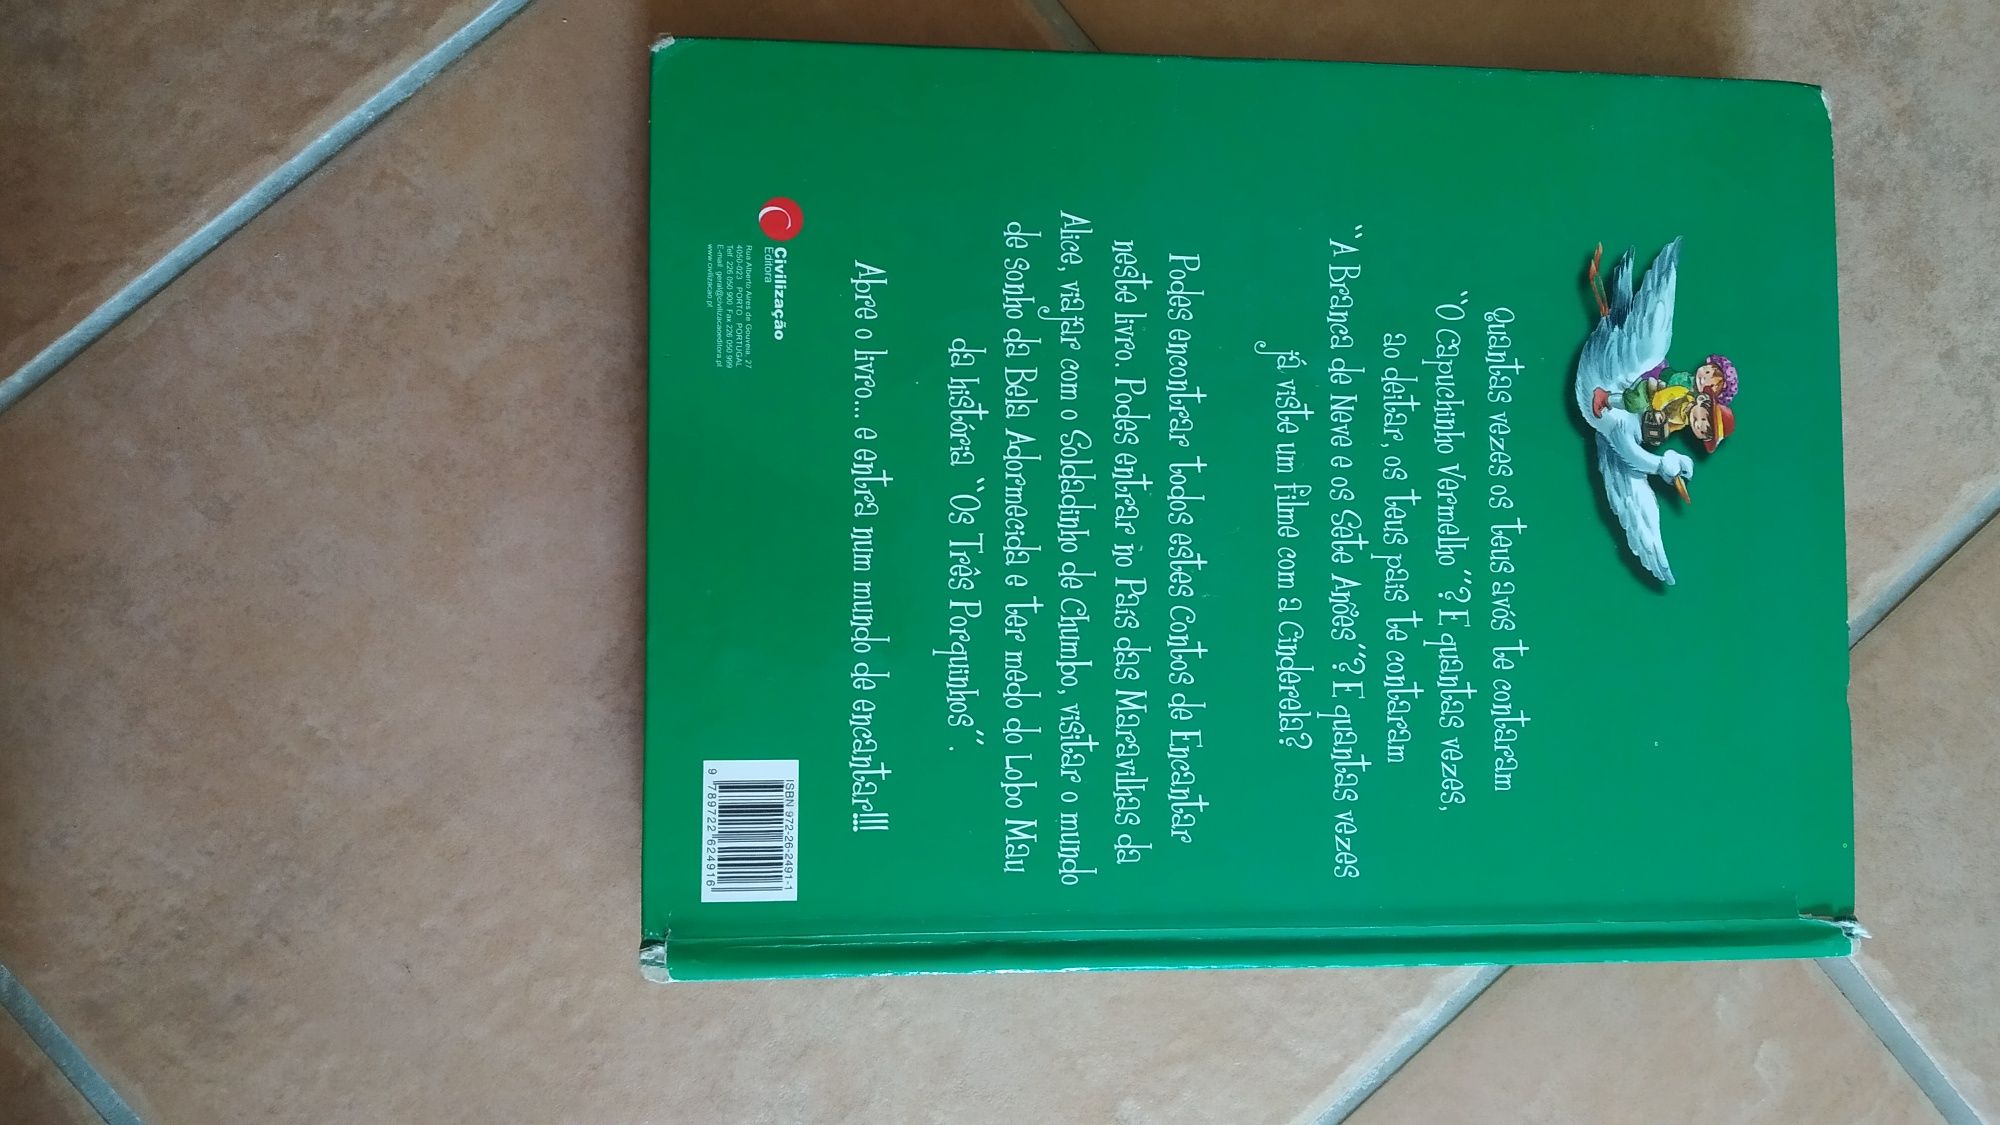 Quantas vezes os teus avós te contaram
"O Capuchinho Vermelho"? E quantas vezes,
ao deitar, os teus pais te contaram
"A Branca de Neve e os Sete Anões"? E quantas vezes
já viste um filme com a Cinderela?
Podes encontrar todos estes Contos de Encantar
neste livro. Podes entrar no País das Maravilhas da
Alice, viajar com o Soldadinho de Chumbo, visitar o mundo
de sonho da Bela Adormecida e ter medo do Lobo Mau
da história "Os Três Porquinhos".
Abre o livro... e entra num mundo de encantar!!!
Civilização
Editora
Rua Alberto Aires de Gouveia, 27
4050-023 PORTO PORTUGAL
Telf. 226 050 900 Fax 226 050 999
E-mail geral@civilizacaoeditora.pt
www.civilizacao.pt
ISBN 972-26-2491-1
9 789722 624916